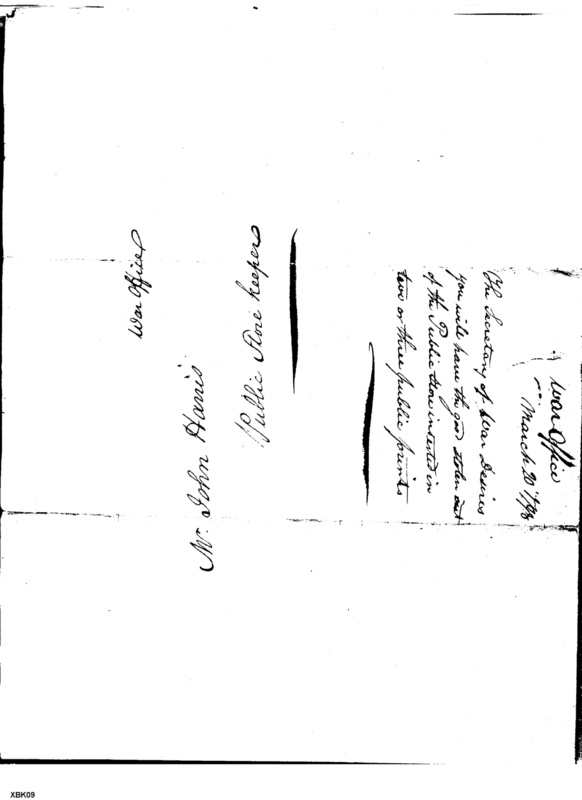 War Office
March 20th 1798
The Secretary of War Desires
you will have the good stolen out
of the Public Store inserted in
two or three public prints
War Office
Mr. John Harris
Public Store keeper
XBK09